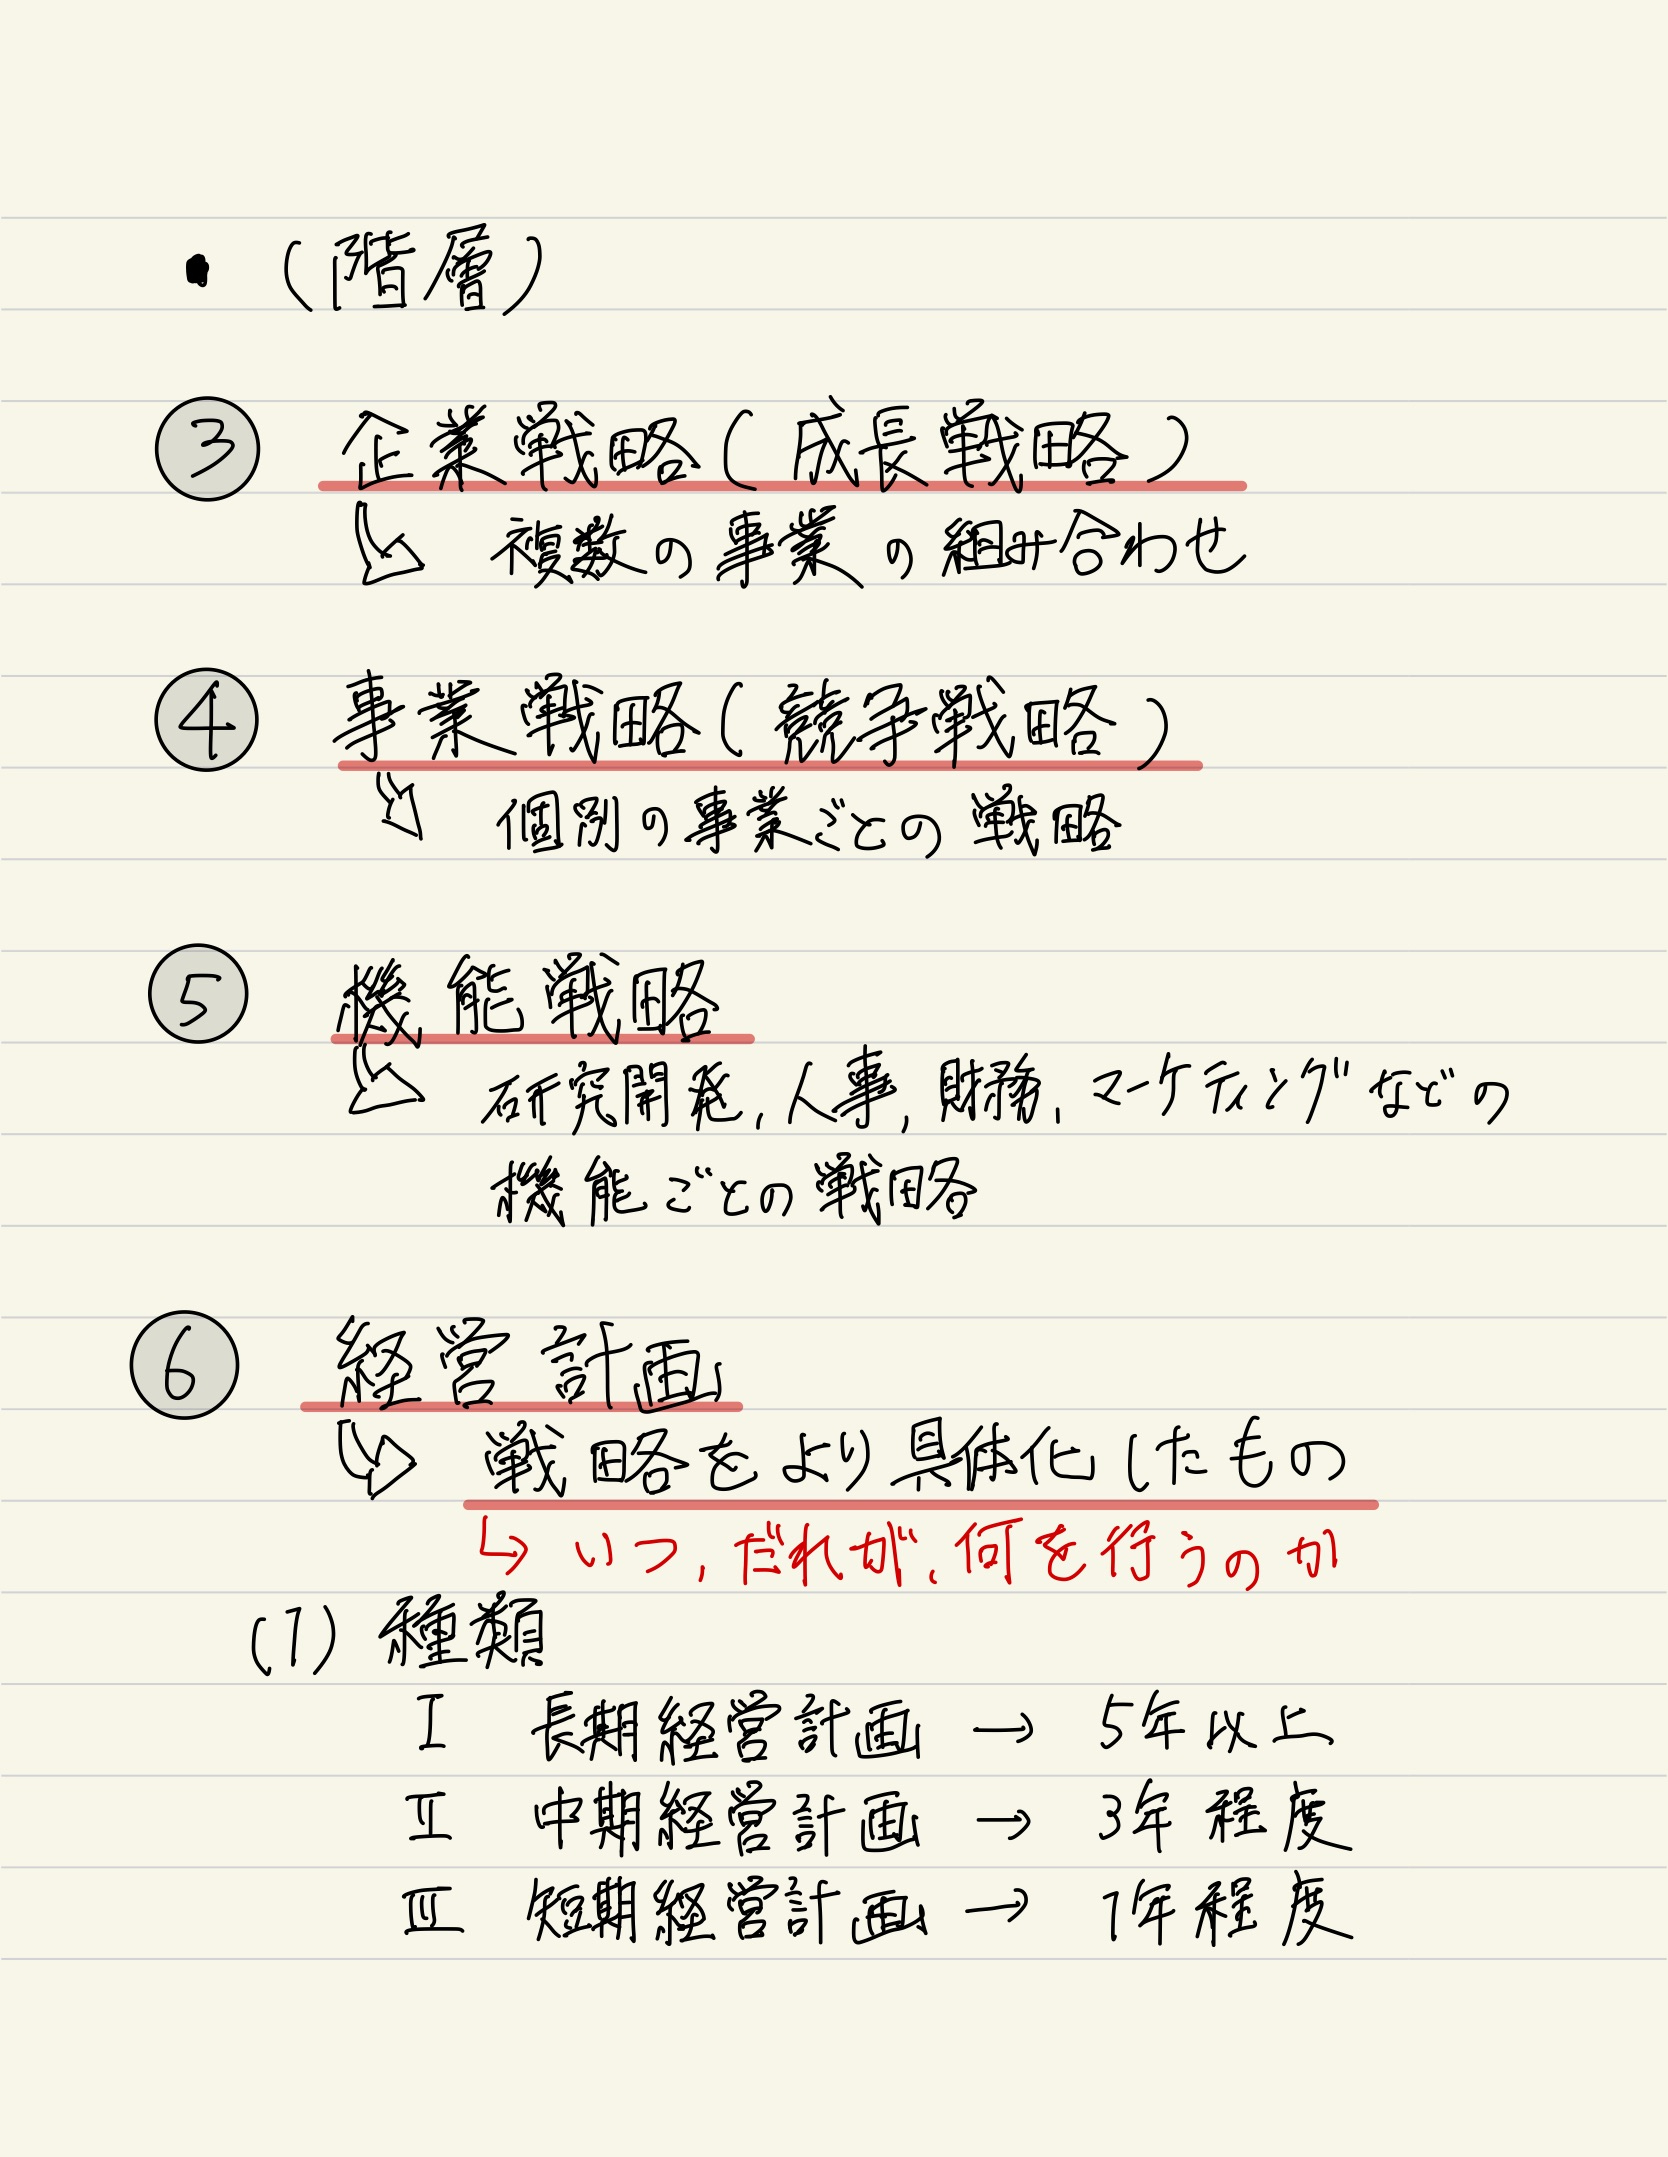 ・(階層)
③ 企業戦略(成長戦略)
複数の事業の組み合わせ
④ 事業戦略(競争戦略)
個別の事業ごとの戦略
⑤ 機能戦略
研究開発,人事,財務,マーケティングなどの
機能ごとの戦略
⑥ 経営計画
戦略をより具体化したもの
↳ いつ,だれが,何を行うのか
(1) 種類
I 長期経営計画 → 5年以上
II 中期経営計画 → 3年程度
III 短期経営計画 → 1年程度